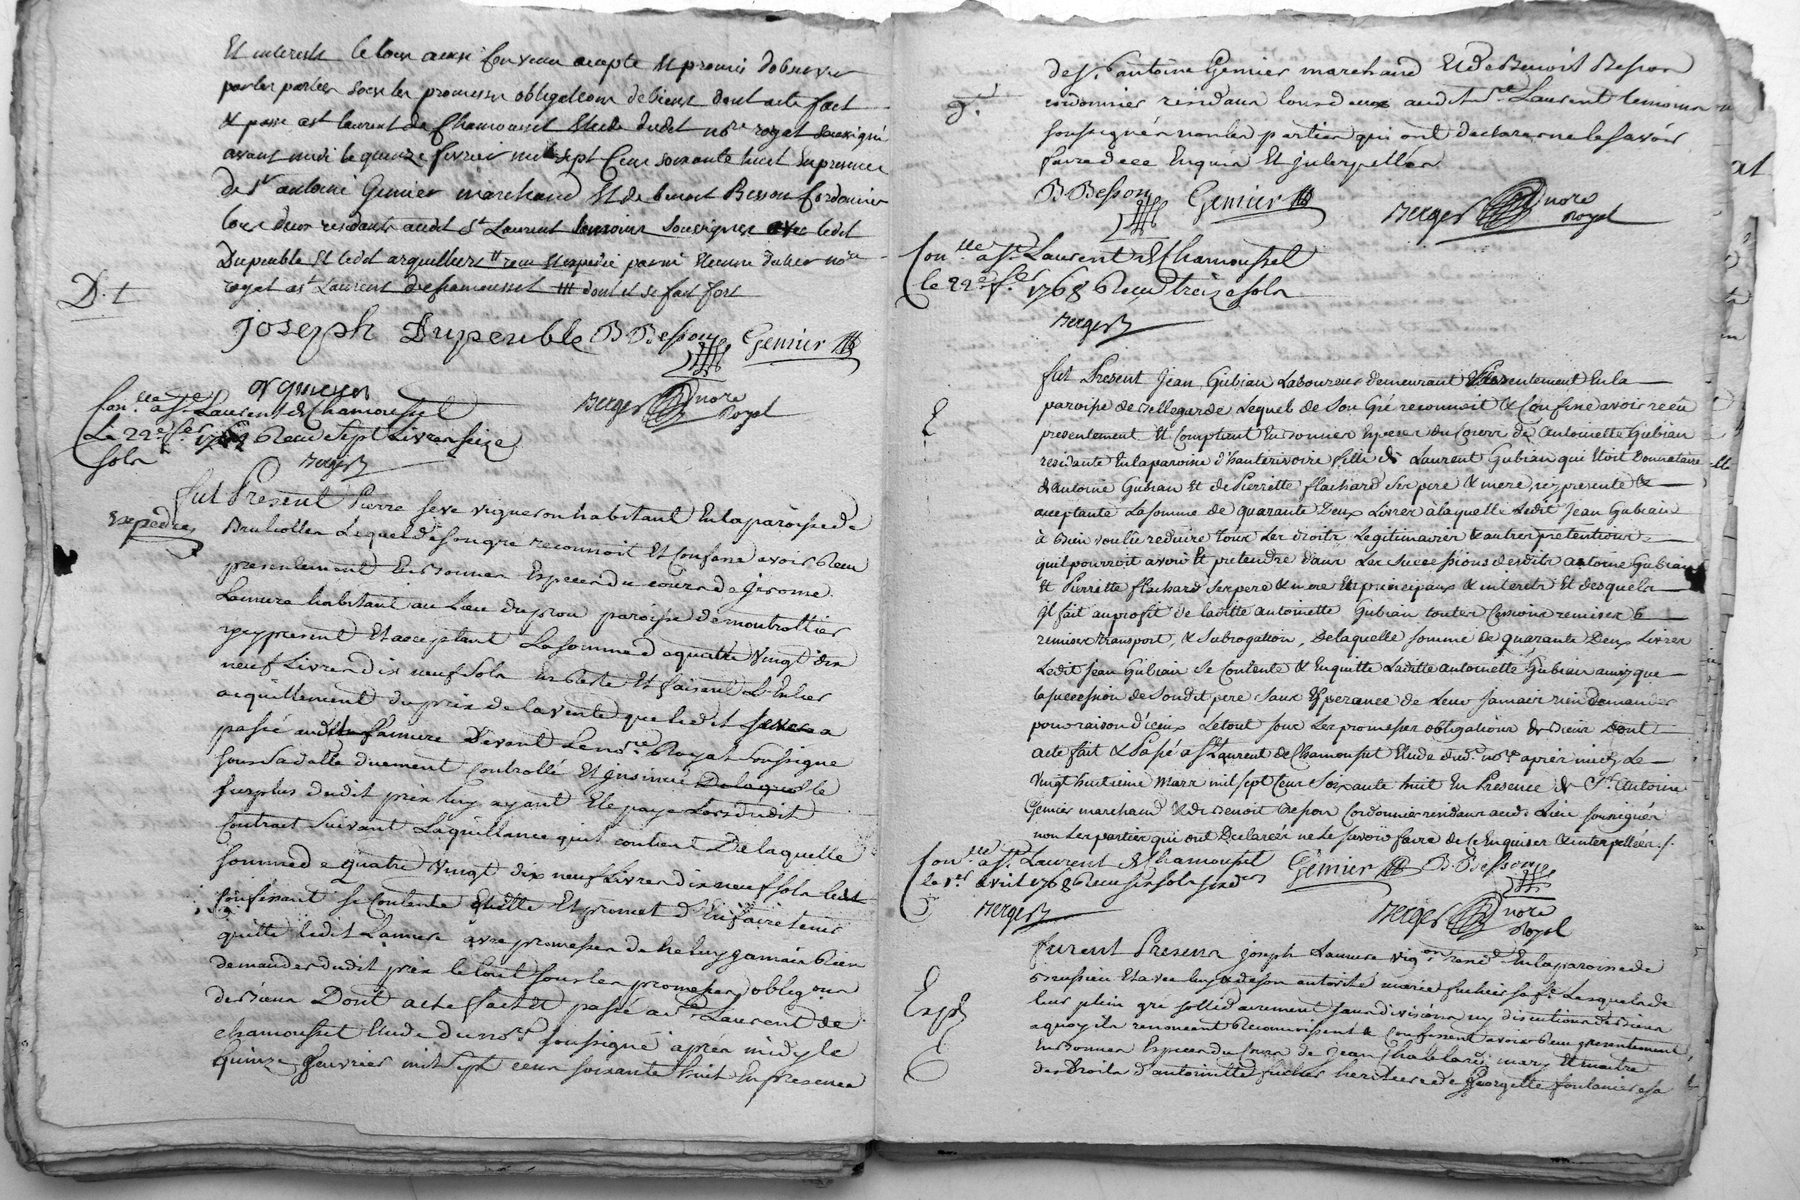 Et interests le tout ainsi convenu accepté Et promis dobserver
par les parties sous les promesses obligations de biens dont acte fait
& passé a st laurent de Chamousset Etude dudit nore royal soussigné
avant midi le quinze fevrier mil sept Cent soixante huit En presence
de sr antoine Gemier marchand Et de benoit Besson Cordonnier
tous deux residants audit St Laurent temoins soussignes avec ledt
Dupeuble Et ledt arquilliere
royal a st Laurent de chamousset dont il se fait fort
D. t
joseph Dupeuble B Besson Gemier
arquillere
Berger nore Royal
Con.llé a St. Laurent de Chamousset
Le 22e fer 1768 Reçu sept Livres seize
sols
Berger
Expediée
fut Present Pierre seve vigneron habitant En la paroisse de
Brullolles Lequel de son gré reconnoit Et Confesse avoir Receu
presentement En bonnes Especes du cours de Jerome
Lamure habitant au Lieu du prou paroisse de montrottier
icy present Et acceptant La somme de quatre Vingt dix
neuf Livres dix neuf sols En Reste Et faisant L'Entier
acquittement du prix de la vente que ledit seve a
passé audit Lamure Devant Le nore Royal soussigné
sous sa datte duement Controllé Et insinué De laquelle
surplus dudit prix luy ayant Eté payé Lors dudit
Contract suivant La quittance qu'il contient De laquelle
somme de quatre Vingt dix neuf Livres dix neuf sols ledit
Confessant se Contente Quitte Et promet d'En faire tenir
quitte ledit Lamure avec promesses de ne luy jamais Rien
demander dudit prix le tout sous les promesses obligons
de Biens Dont acte fait Et passé a st Laurent de
chamousset Etude du nore soussigné apres midy le
Quinze fevrier mil sept cent soixante huit En presence
de sr. antoine Gemier marchand Et de Benoit Besson
cordonnier residants tous deux audit St Laurent temoins
soussignés non les parties qui ont declaré ne le savoir
faire de ce Enquis Et interpellés
B Besson Gemier Berger nore Royal
Con.llé a St. Laurent de Chamousset
le 22e fer 1768 Reçu treize sols
Berger
fut Present Jean Gubian Laboureur demeurant presentement En la
paroisse de Bellegarde Lequel de Son Gré reconnoit & Confesse avoir reçu
presentement Et Comptant En bonnes Especes du Cours de Antoinette Gubian
residante En la paroisse d'hauterivoire fille de Laurent Gubian qui Etoit Donnataire
d'Antoine Gubian Et de Pierrette flachard Ses pere & mere, icy presente &
acceptante La somme de quarante Deux Livres à laquelle Ledit Jean Gubian
à bien voulu reduire tous Les droits Legitimaires & autres pretentions
qu'il pourroit avoir Et pretendre dans Les Successions desdits antoine Gubian
Et Pierrette flachard Ses pere & mere En principaux & interets Et desquels
Il fait au profit de laditte antoinette Gubian toutes Cessions remises
transport, & Subrogation, De laquelle somme de quarante Deux Livres
Ledit Jean Gubian Se Contente & En quitte Laditte antoinette Gubian ainsy que
la succession de Son dit pere sans Esperance de Leur Jamais rien demander
pour raison d'iceux Le tout sous Les promesses obligations de Biens Dont
acte fait & Passé a St Laurent de Chamousset Etude dud. nore après midy Le
Vingt huitieme Mars mil sept Cent Soixante huit En Presence de Sr. Antoine
Gemier marchand & de Benoit Besson Cordonnier residants aud. Lieu soussignés
non Les parties qui ont Declarées ne Le savoir faire de ce Enquises & interpellées ./.
Con.llé a St. Laurent de Chamousset Gemier B. Besson
le 1er avril 1768 Reçu six sols six drs
Berger Berger nore Royal
furent Presens joseph Lamure vigon resid En la paroisse de
Brussieu Et avec luy & de son autorité marie sa fe Lesquels de
leur plein gré sollidairement sans division ny discution de Biens
a quoy ils renoncent Reconnoissent & Confessent avoir Reçu presentement
En bonnes Especes du Cours de Jean mary Et maitre
des Droits d'antoinette heritiere de Georgette sa